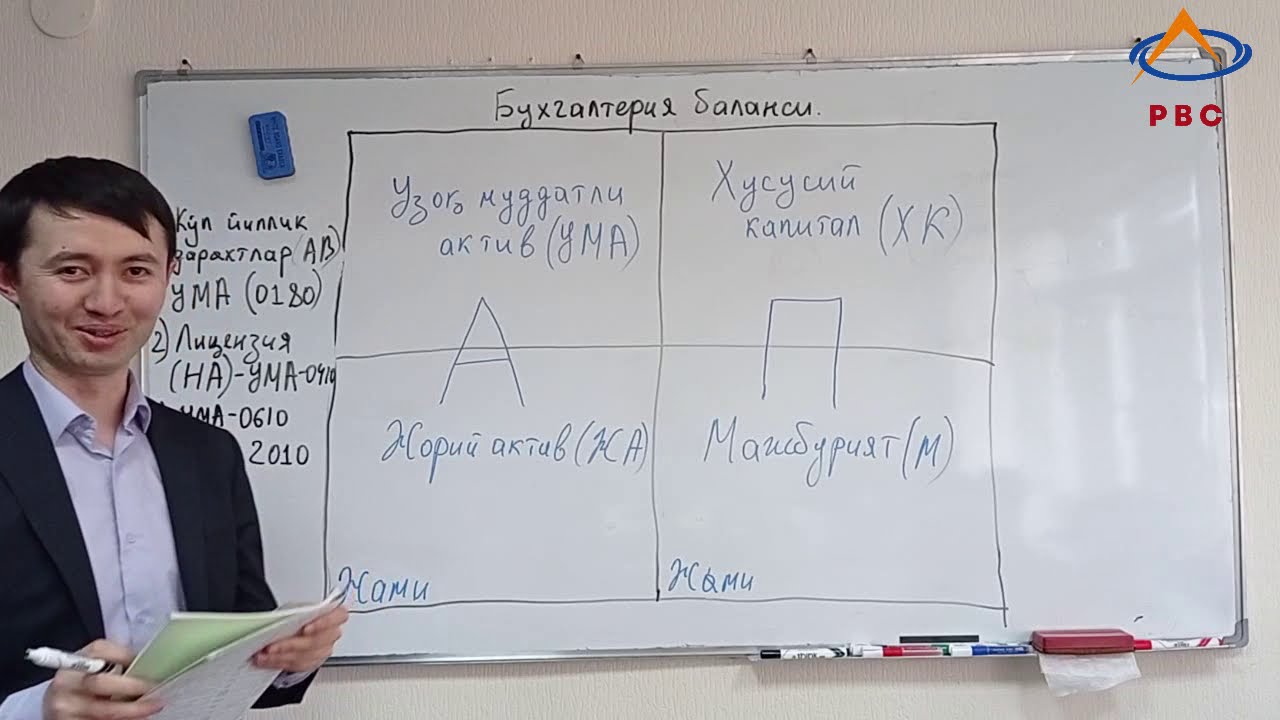 Бухгалтерия баланси.
РВС
Узоқ муддатли
актив (УМА)
Хусусий
капитал (ХК)
А
П
Жорий актив (ЖА)
Мажбурият (М)
Жами
Жами
Кўп йиллик
дарахтлар (АВ)
УМА (0180)
2) Лицензия
(НА)-УМА-0410
УМА-0610
2010